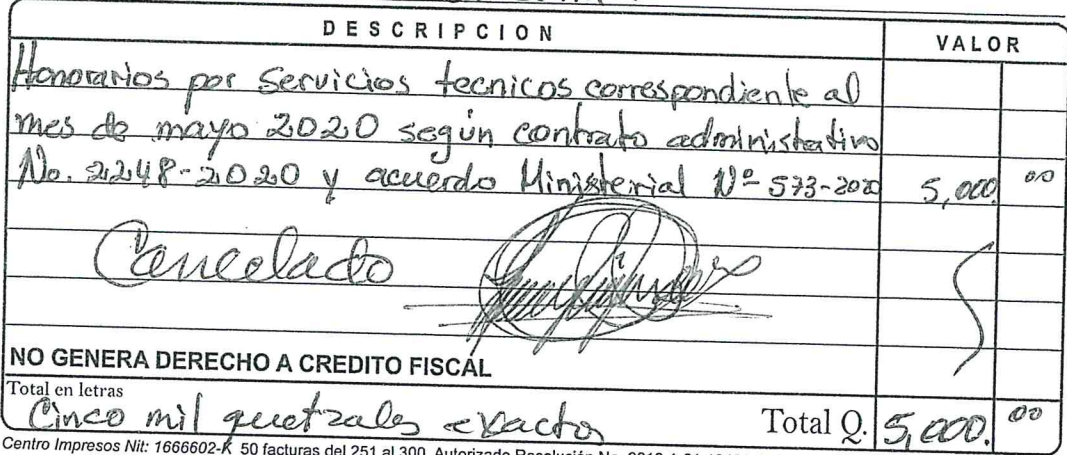 DESCRIPCION VALOR
Honorarios por Servicios tecnicos correspondiente al
mes de mayo 2020 según contrato administrativo
No. 2248-2020 y acuerdo Ministerial Nº 573-2020 5,000.00
Cancelado
NO GENERA DERECHO A CREDITO FISCAL
Total en letras
Cinco mil quetzales exactos Total Q. 5,000.00
Centro Impresos Nit: 1666602-K 50 facturas del 251 al 300. Autorizado Resolución No.